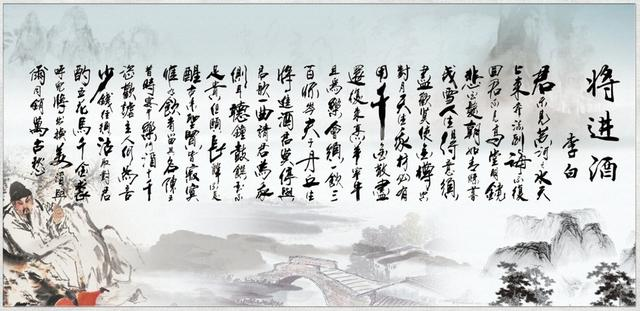 将进酒
李白
君不见黄河之水天
上来奔流到海不复
回君不见高堂明镜
悲白髮朝如青丝暮
成雪人生得意须
盡歡莫使金樽空
对月天生我材必有
用千金散盡
還復来烹羊宰牛
且為樂會须一飲三
百杯岑夫子丹丘生
将進酒君莫停與
君歌一曲请君為我
侧耳聽鐘鼓饌玉不
足贵但願長醉不愿
醒古来聖賢皆寂寞
惟有飲者留其名陳王
昔時宴平樂斗酒十千
恣歡謔主人何為言
少钱径须沽取对君
酌五花马千金裘
呼兒將出换美酒與
爾同销萬古愁